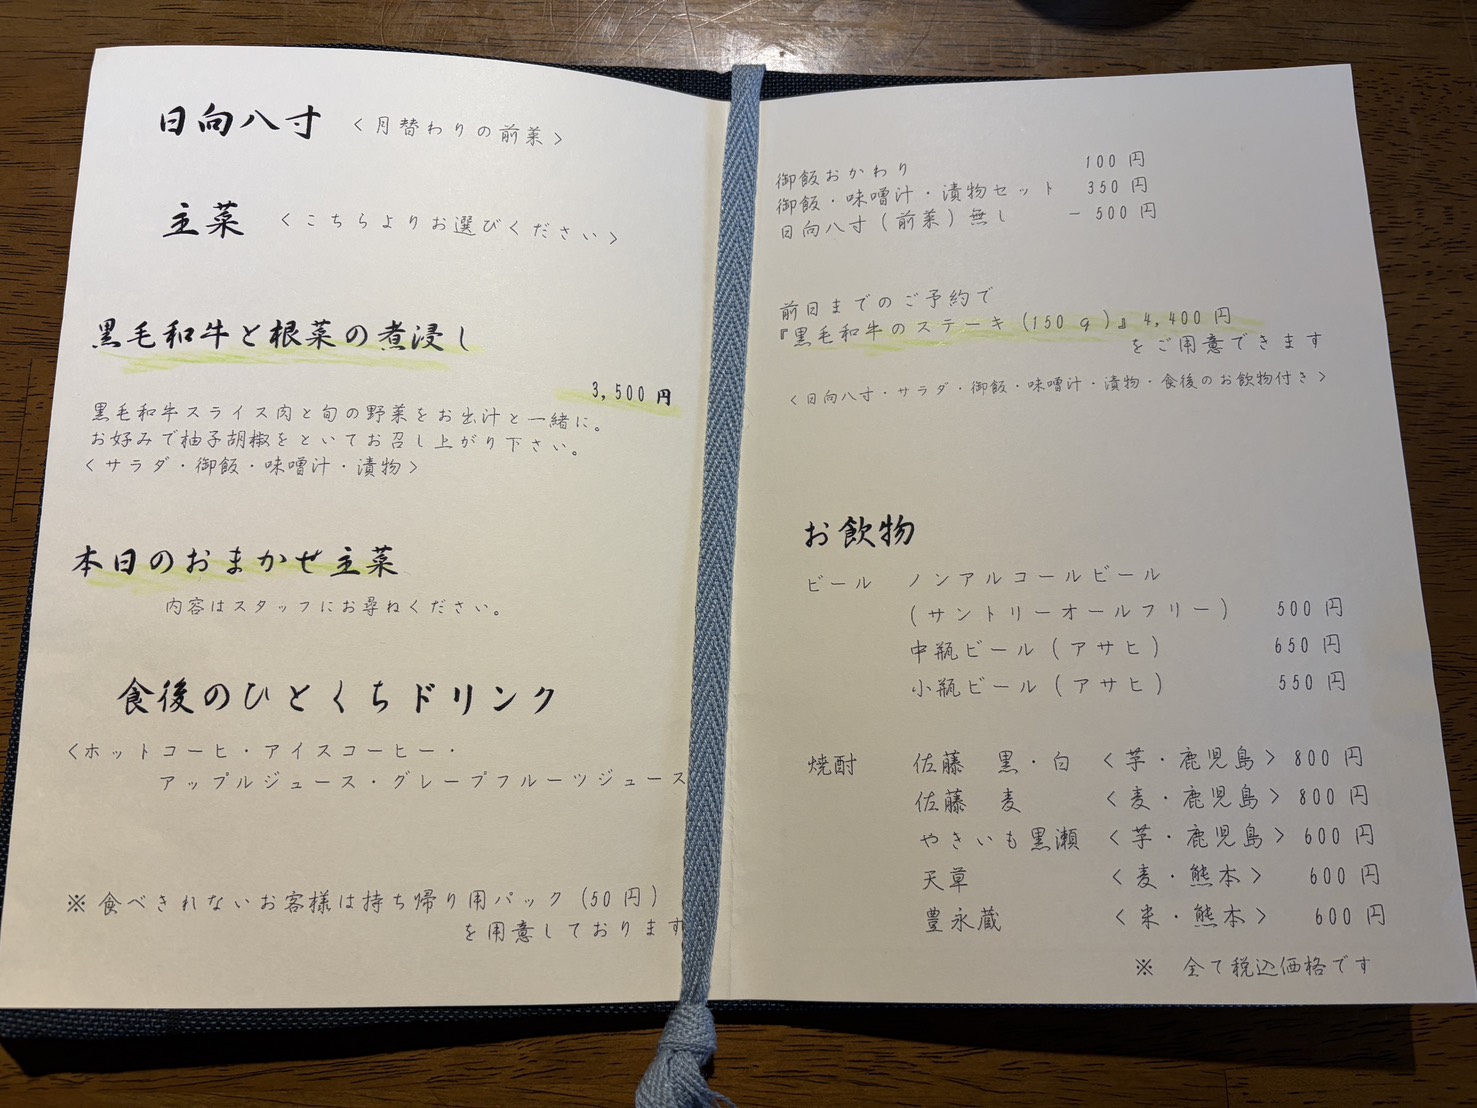 日向八寸 <月替わりの前菜>
主菜 <こちらよりお選びください>
黒毛和牛と根菜の煮浸し
3,500円
黒毛和牛スライス肉と旬の野菜をお出汁と一緒に。
お好みで柚子胡椒をといてお召し上がり下さい。
<サラダ・御飯・味噌汁・漬物>
本日のおまかせ主菜
内容はスタッフにお尋ねください。
食後のひとくちドリンク
<ホットコーヒ・アイスコーヒー・
アップルジュース・グレープフルーツジュース
※食べきれないお客様は持ち帰り用パック(50円)
を用意しております
御飯おかわり 100円
御飯・味噌汁・漬物セット 350円
日向八寸(前菜)無し -500円
前日までのご予約で
『黒毛和牛のステーキ(150g)』4,400円
をご用意できます
<日向八寸・サラダ・御飯・味噌汁・漬物・食後のお飲物付き>
お飲物
ビール ノンアルコールビール
(サントリーオールフリー) 500円
中瓶ビール(アサヒ) 650円
小瓶ビール(アサヒ) 550円
焼酎 佐藤 黒・白 <芋・鹿児島> 800円
佐藤 麦 <麦・鹿児島> 800円
やきいも黒瀬 <芋・鹿児島> 600円
天草 <麦・熊本> 600円
豊永蔵 <米・熊本> 600円
※ 全て税込価格です